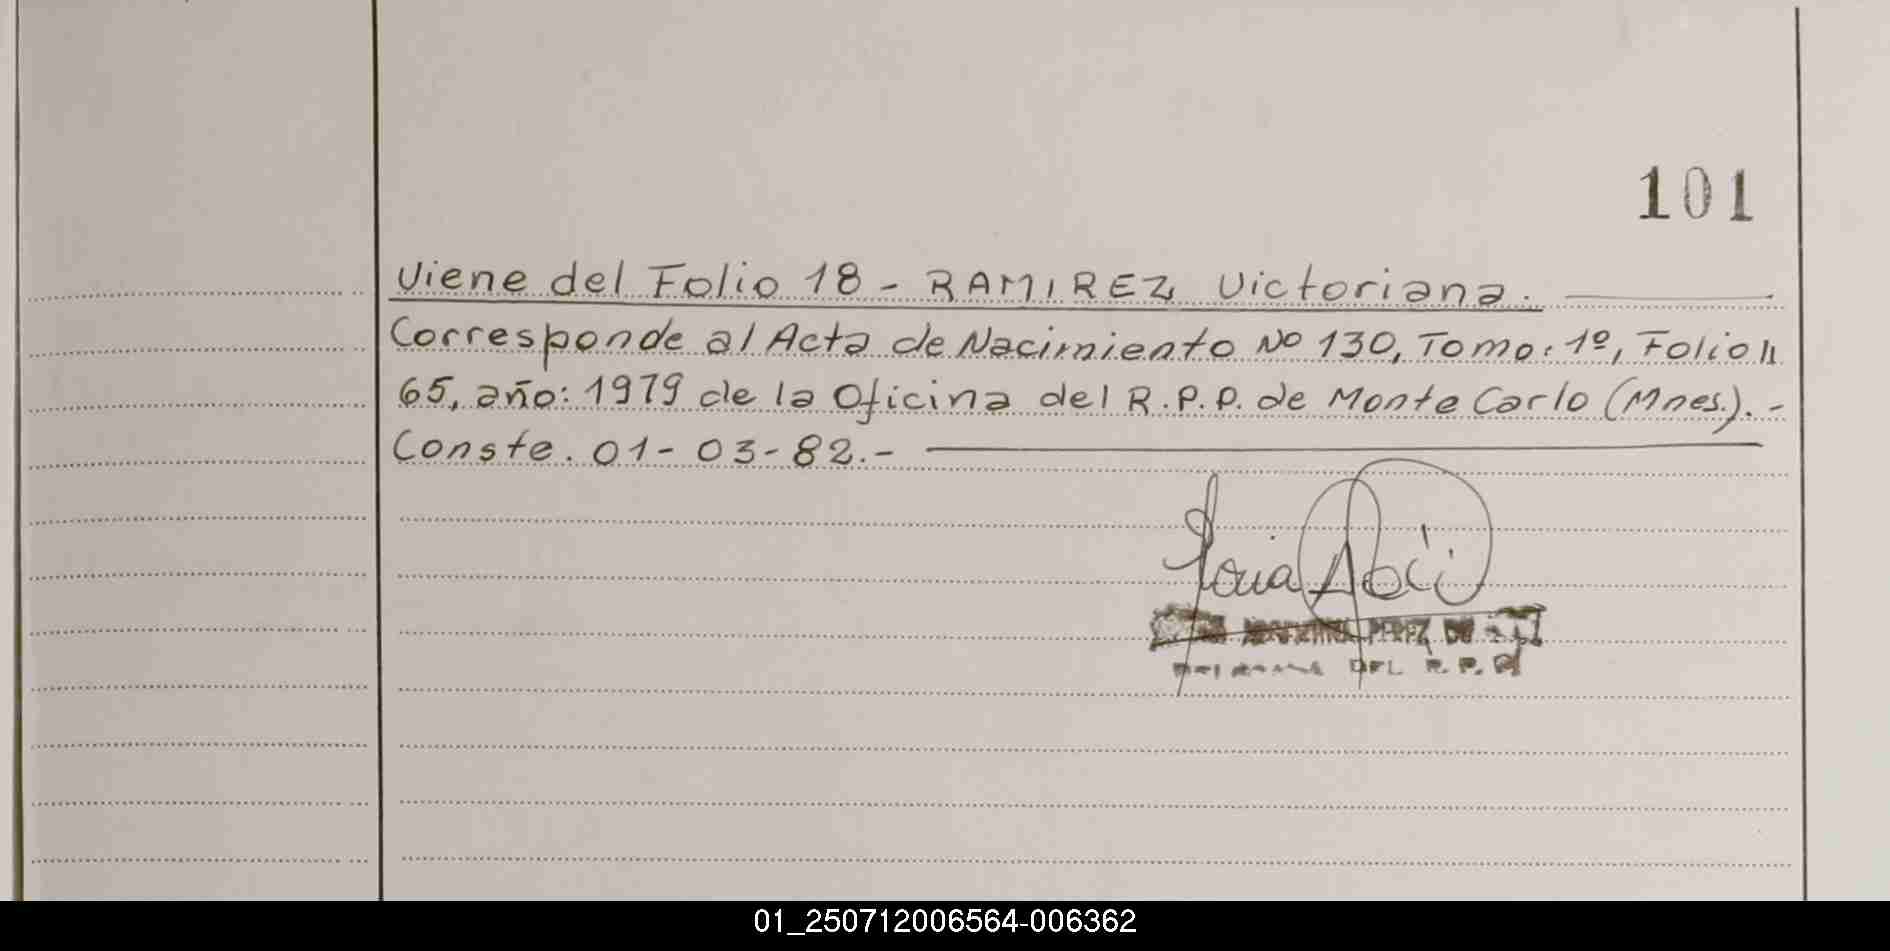 101
Viene del Folio 18 - RAMIREZ Victoriana.
Corresponde al Acta de Nacimiento Nº 130, Tomo: 1º, Folio
65, año: 1979 de la Oficina del R.P.P. de Monte Carlo (Mnes.).-
Conste. 01-03-82.-
PEREZ DE
DEL R. P. P.
01_250712006564-006362